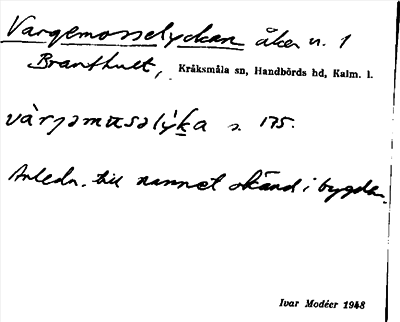 Vargemosselyckan åker n. 1
Branthult, Kråksmåla sn, Handbörds hd, Kalm. l.
vàrjəmusəlýka s. 175.
Anledn. till namnet okänd i bygden.
Ivar Modéer 1948